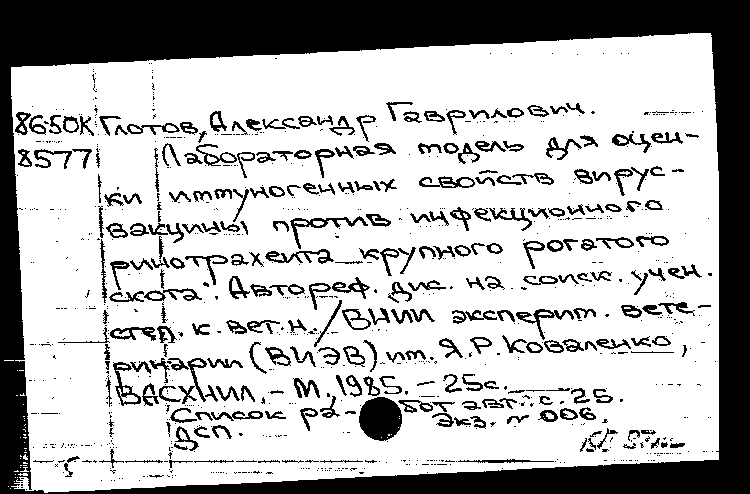 86-50К Глотов, Александр Гаврилович.
8577 Лабораторная модель для оцен-
ки иммуногенных свойств вирус-
вакцины против инфекционного
ринотрахеита крупного рогатого
скота: Автореф. дис. на соиск. учен.
степ. к. вет. н. / ВНИИ эксперим. вете-
ринарии (ВИЭВ) им. Я.Р. Коваленко,
ВАСХНИЛ. - М., 1985. - 25с.
Список ра- бот авт.: с. 25.
Экз. № 006.
ДСП.